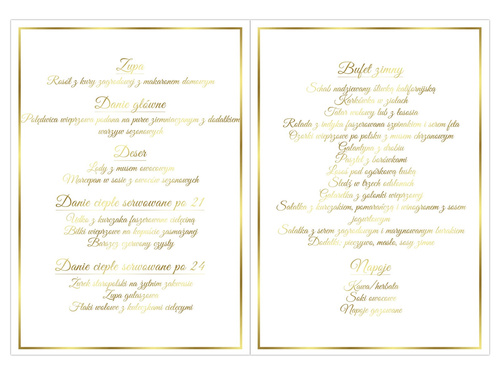 Zupa
Rosół z kury zagrodowej z makaronem domowym
Danie główne
Polędwica wieprzowa podana na puree ziemniaczanym z dodatkiem
warzyw sezonowych
Deser
Lody z musem owocowym
Marcepan w sosie z owoców sezonowych
Danie ciepłe serwowane po 21
Udko z kurczaka faszerowane cielęciną
Bitki wieprzowe na kapuście zasmażanej
Barszcz czerwony czysty
Danie ciepłe serwowane po 24
Żurek staropolski na żytnim zakwasie
Zupa gulaszowa
Flaki wołowe z kuleczkami cielęcymi
Bufet zimny
Schab nadziewany śliwką kalifornijską
Karkówka w ziołach
Tatar wołowy lub z łososia
Rolada z indyka faszerowana szpinakiem i serem feta
Ozorki wieprzowe po polsku z musem chrzanowym
Galantyna z drobiu
Pasztet z borówkami
Łosoś pod ogórkową łuską
Śledź w trzech odsłonach
Galaretka z golonki wieprzowej
Sałatka z kurczakiem, pomarańczą i winogronem z sosem
jogurtowym
Sałatka z serem zagrodowym i marynowanym burakiem
Dodatki: pieczywo, masło, sosy zimne
Napoje
Kawa/herbata
Soki owocowe
Napoje gazowane